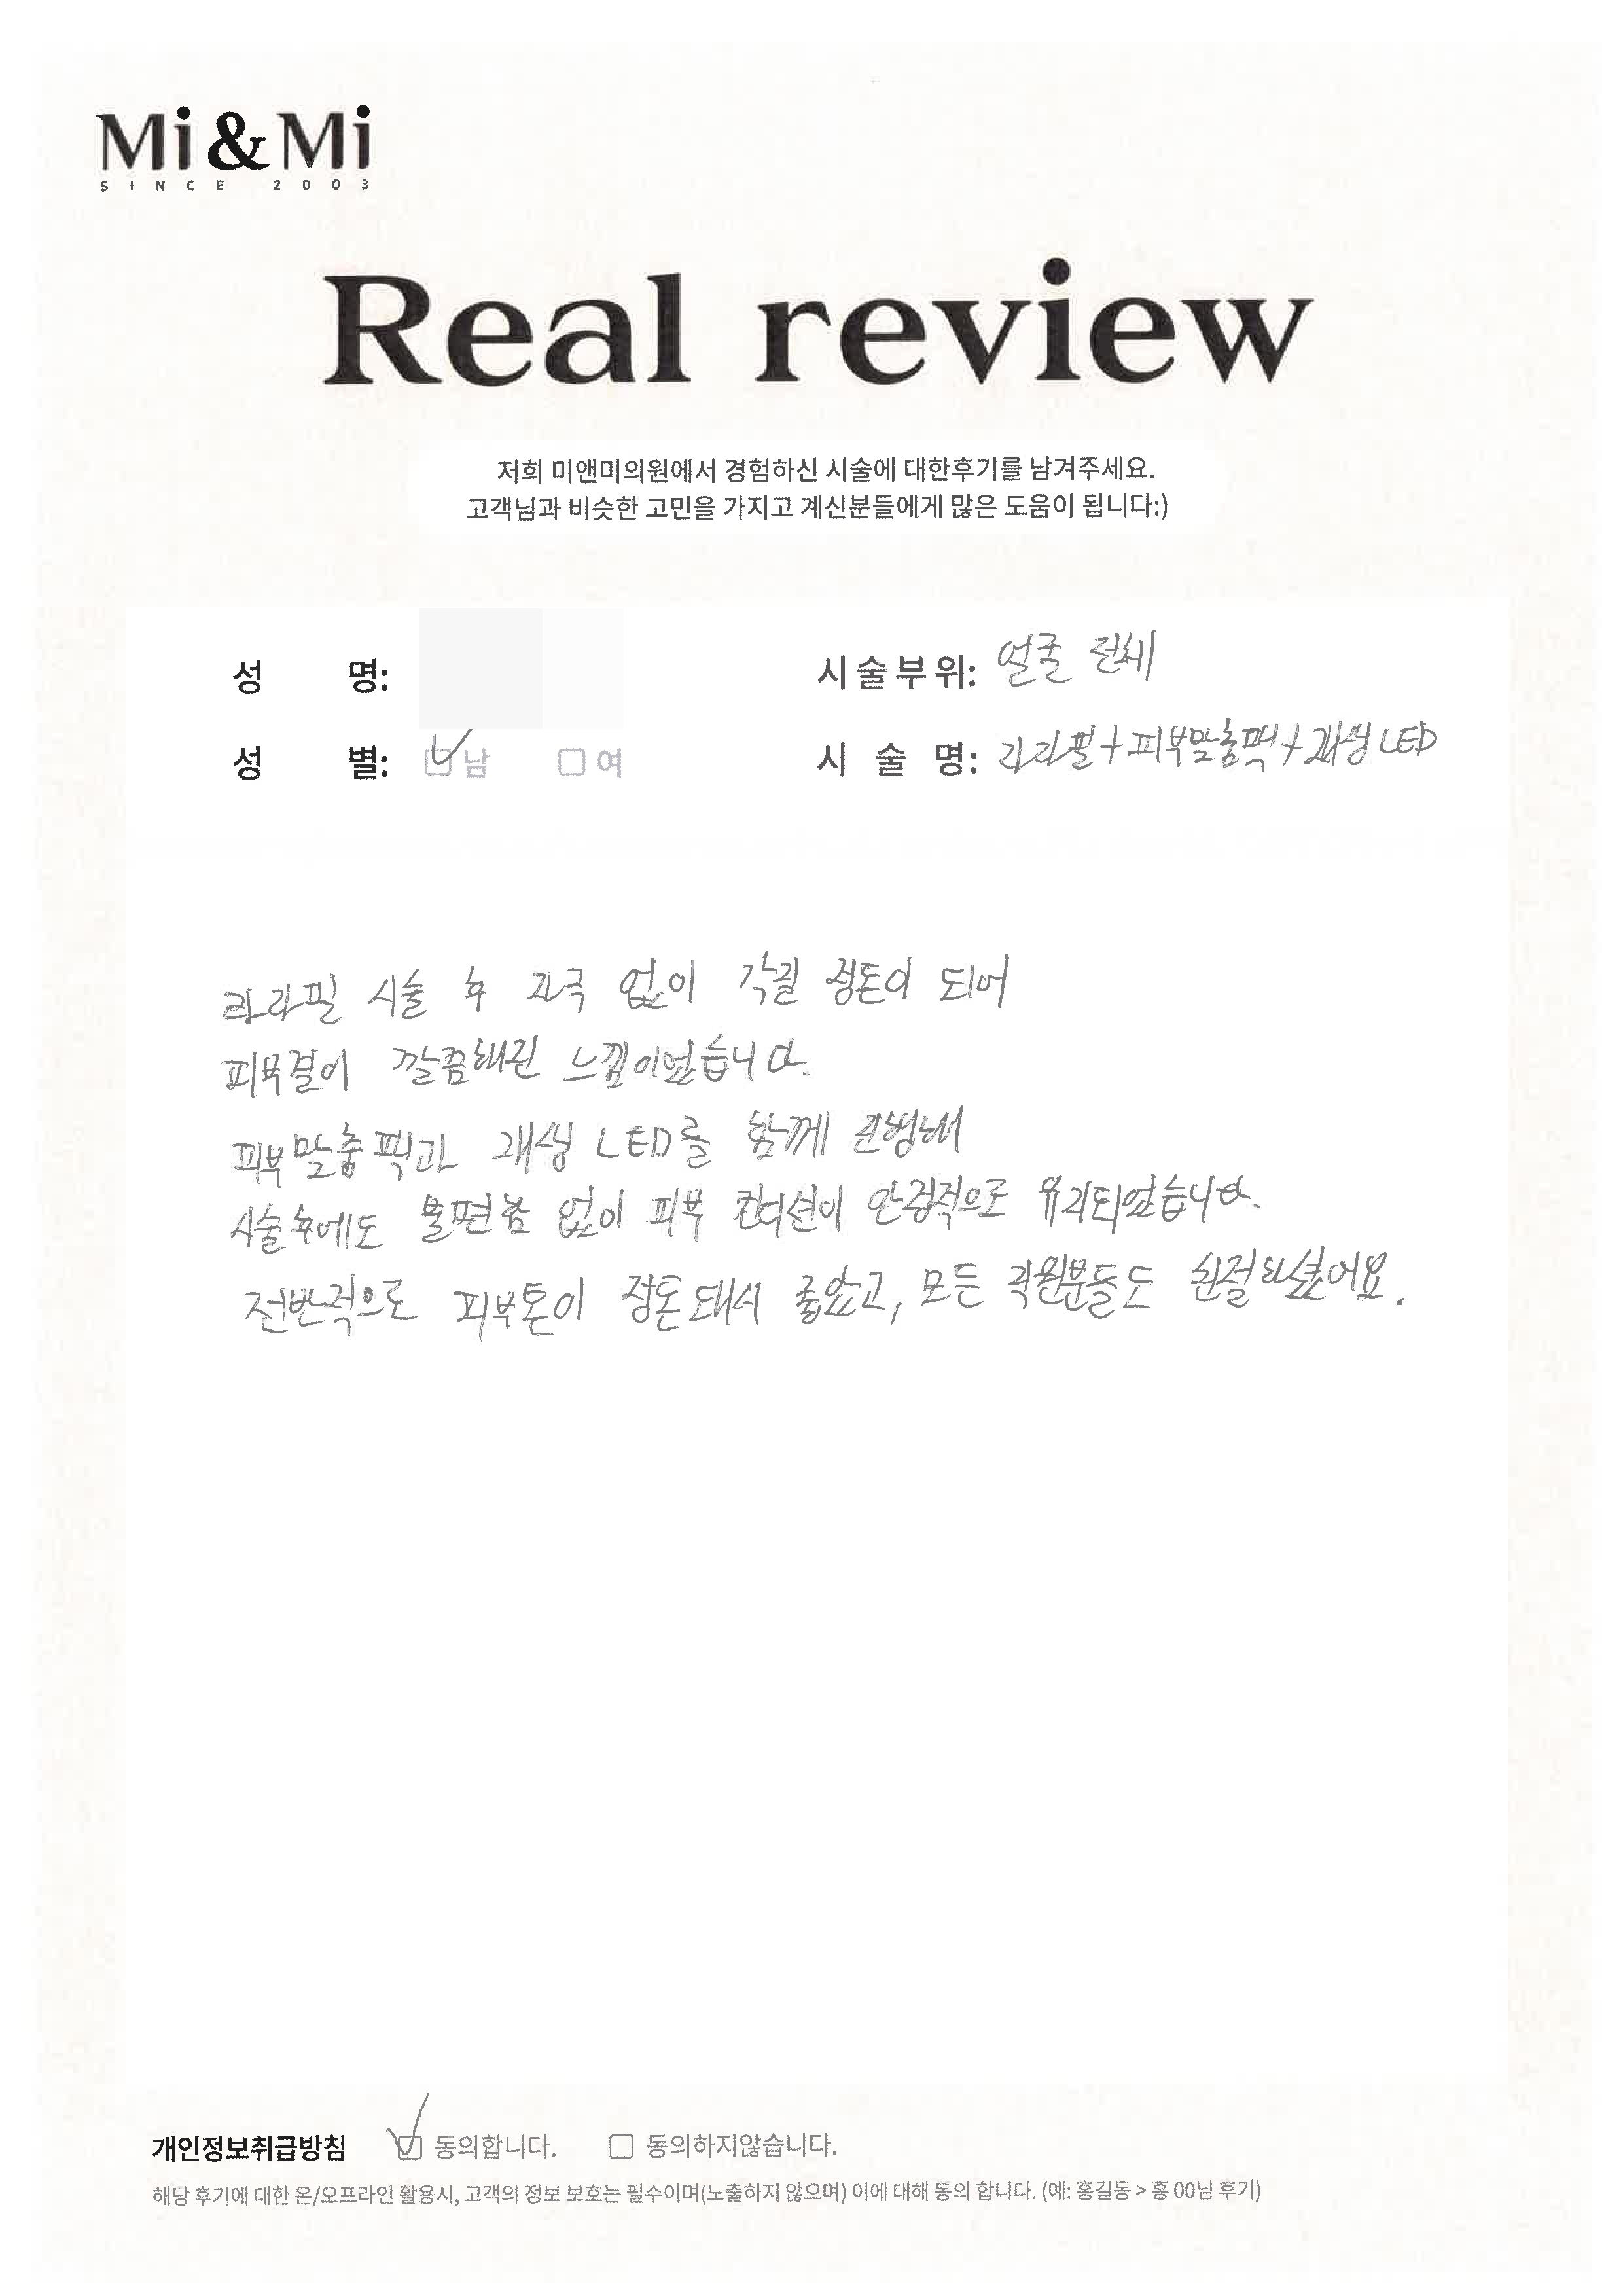 Mi&Mi
SINCE 2003
Real review
저희 미앤미의원에서 경험하신 시술에 대한후기를 남겨주세요.
고객님과 비슷한 고민을 가지고 계신분들에게 많은 도움이 됩니다:)
성 명:
시술부위: 얼굴 전체
성 별: 남 여
시 술 명: 라라필+피부맞춤팩+재생LED
라라필 시술 후 자극 없이 각질 정돈이 되어
피부결이 깔끔해진 느낌이었습니다.
피부맞춤 팩과 재생 LED를 함께 진행해
시술후에도 불편함 없이 피부 컨디션이 안정적으로 유지되었습니다.
전반적으로 피부톤이 정돈돼서 좋았고, 모든 직원분들도 친절하셨어요.
개인정보취급방침 동의합니다. 동의하지않습니다.
해당 후기에 대한 온/오프라인 활용시, 고객의 정보 보호는 필수이며(노출하지 않으며) 이에 대해 동의 합니다. (예: 홍길동 > 홍 00님 후기)